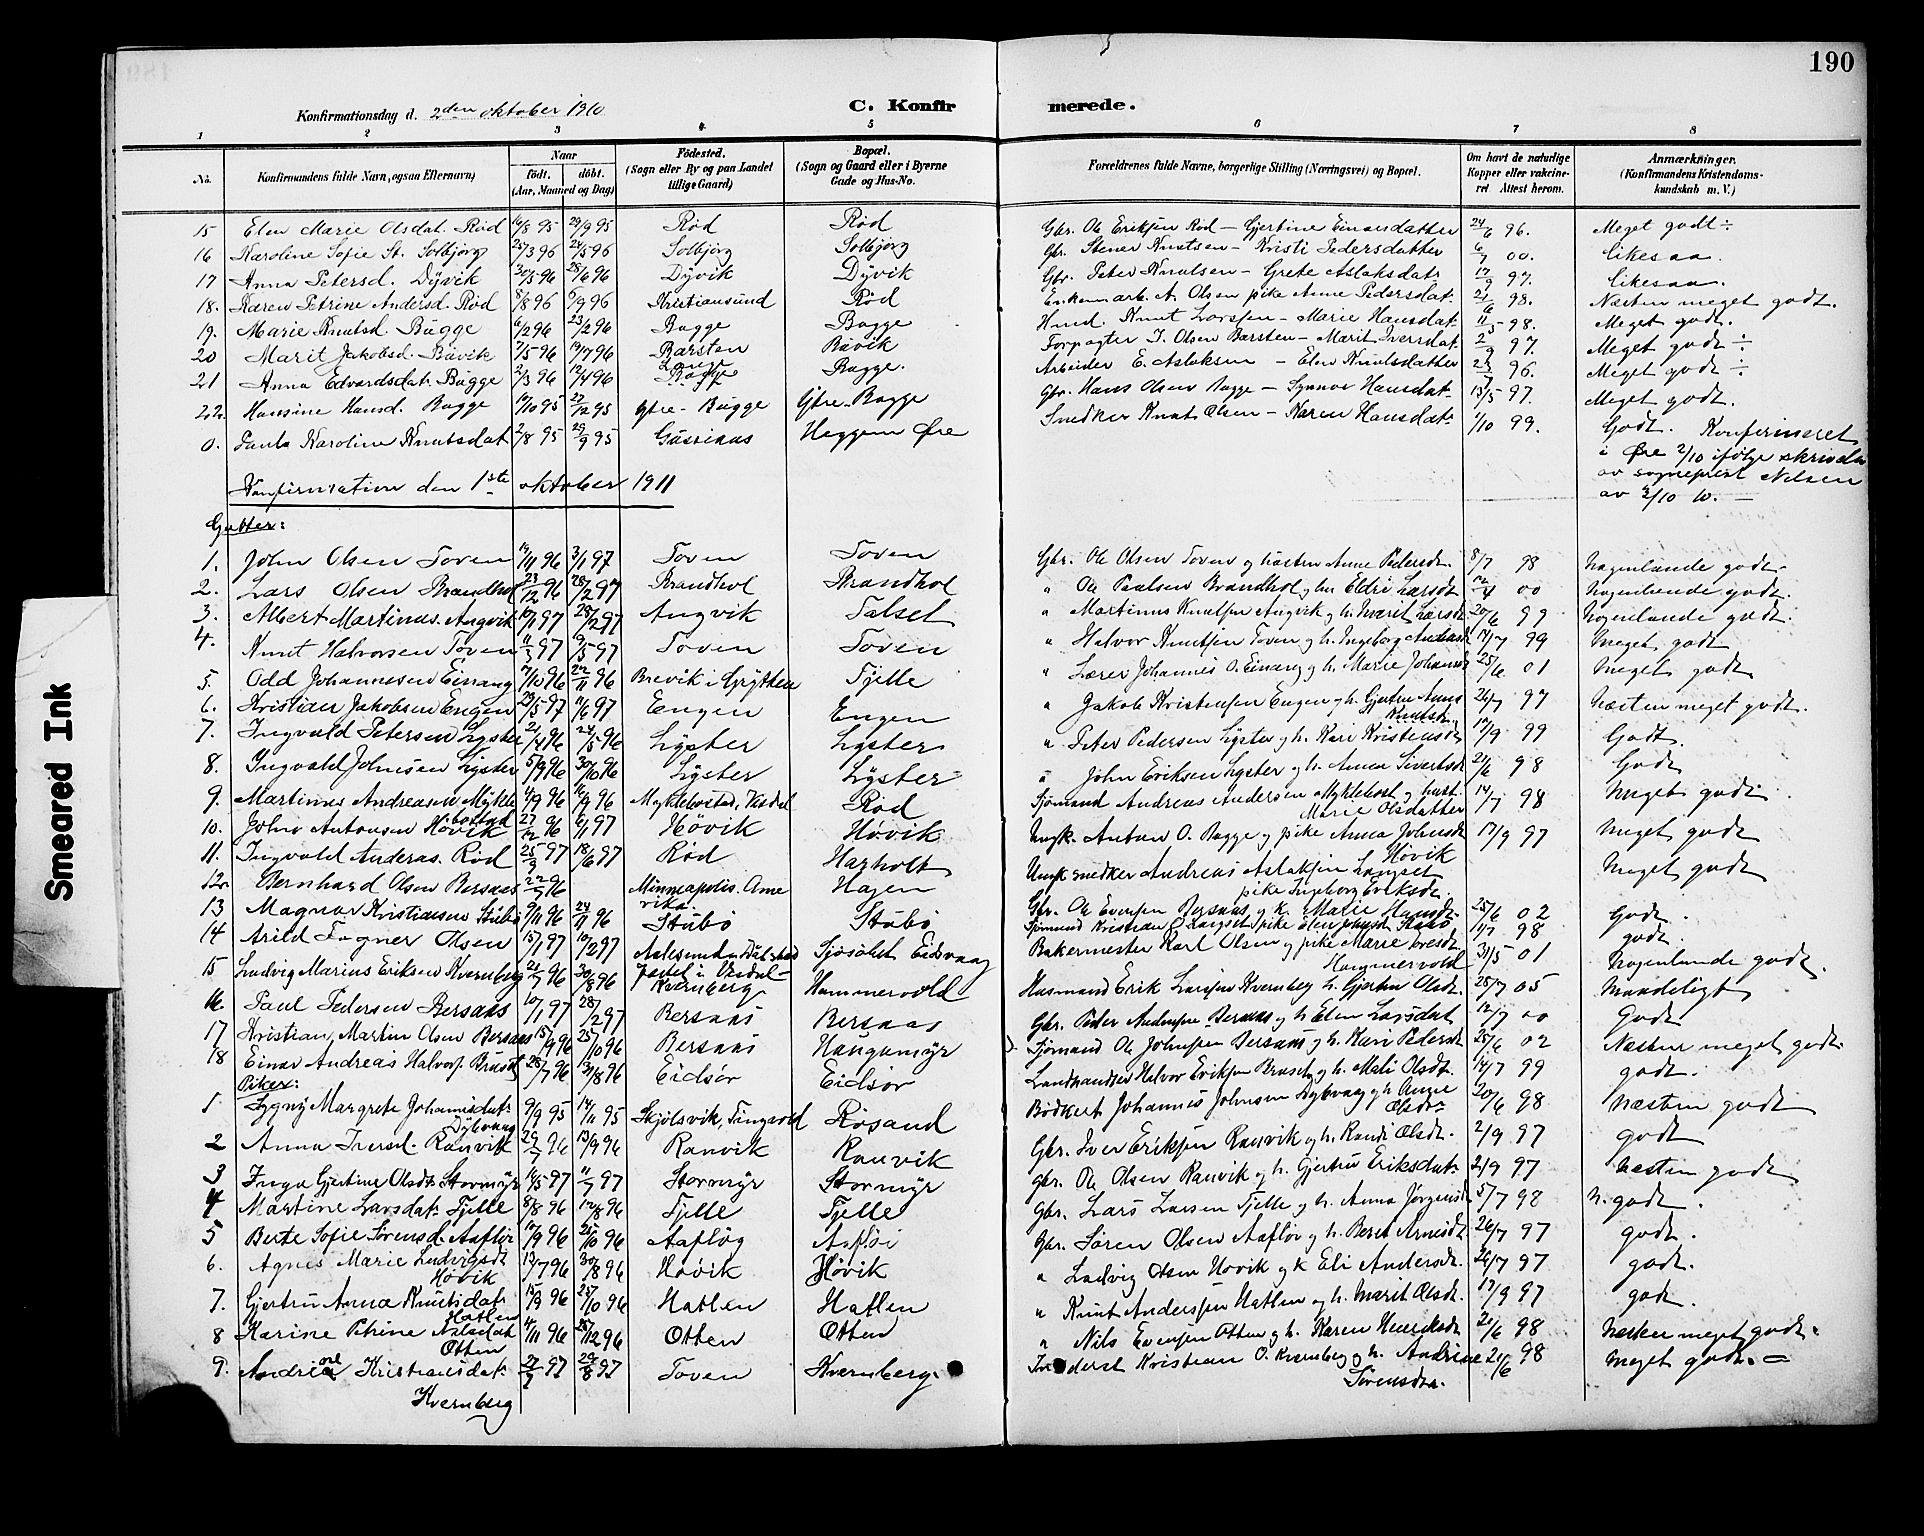 190
Konfirmationsdag d. 2den oktober 1910 C. Konfirmerede.
1 2 3 4 5 6 7 8
No. Konfirmandens fulde Navn, ogsaa Efternavn) Naar født. døbt. (Aar, Maaned og Dag) Fødested. (Sogn eller By og paa Landet tillige Gaard) Bopæl. (Sogn og Gaard eller i Byerne Gade og Hus-No. Forældrenes fulde Navne, borgerlige Stilling (Næringsvei) og Bopæl. Om havt de naturlige Kopper eller vakcineret Attest herom. Anmærkninger. (Konfirmandens Kristendomskundskab m. V.)
15 Elen Marie Olsdat. Rød 16/8 95 29/9 95 Rød Rød Gbr. Ole Eriksen Rød - Gjertine Einarsdatter 24/6 96. Meget godt ÷
16 Karoline Sofie St. Solbjørg 25/3 96 24/5 96 Solbjørg Solbjørg Gbr. Stener Knutsen - Kristi Pedersdatter 6/7 00. likesaa.
17 Anna Petersd. Dyvik 30/5 96 28/6 96 Dyvik Dyvik Gbr. Peter Knutsen - Grete Aslaksdat. 17/9 97. likesaa.
18. Karen Petrine Andersd. Rød 8/8 96 6/9 96 Kristiansund Rød Enkem. arb. A. Olsen pike Anne Pedersdat. 21/6 98. Næsten meget godt.
19. Marie Knutsd. Bugge 6/2 96 23/2 96 Bugge Bugge Husd. Knut Larssen - Marie Hansdat. 11/5 98. Meget godt.
20 Marit Jakobsd. Bævik 7/5 96 19/7 96 Barsten Bævik Forpagter J. Olsen Barsten - Marit Iversdat. 2/9 97. Meget godt ÷
21 Anna Edvardsdat. Bugge 2/3 96 12/4 96 Bugge Bugge. Arbeider E. Aslaksen - Elen Knutsdatter 23/7 96. Meget godt ÷
22. Hansine Hansd. Bugge 19/10 95 22/12 95 Gjtre-Bugge Gjtre-Bugge Gbr. Hans Olsen Bugge - Synnøv Hansdat. 13/5 97. Meget godt.
0. Paula Karoline Knutsdat 2/8 95 29/9 95 Gussiaas Heggem Øre Snedker Knut Olsen - Karen Hansdat. 1/10 99. Godt. Konfirmeret
i Øre 2/10 ifølge skrivelse
av sogneprest Nelsen
av 3/10 10. —
Konfirmation den 1ste oktober 1911
Gutter:
1. John Olsen Toven 19/11 96 3/1 97 Toven Toven Gbr. Ole Olsen Toven og hustru Anne Pedersdt. 8/7 98 Nogenlunde godt.
2. Lars Olsen Brandhol 23/12 96 28/2 97 Brandhol Brandhol " Ole Paulsen Brandhol og hu Eldri Larsdt 12/4 00 Nogenlunde godt.
3. Albert Martinus. Angvik 10/1 97 28/2 97 Angvik Talset " Martinus Knutsen Angvik og h. Marit Larsdt 20/6 99 Nogenlunde godt.
4. Knut Halvorsen Toven 11/3 97 9/5 97 Toven Toven " Halvor Knutsen Toven og h. Ingeborg Andersdt 17/7 99 Meget godt
5. Odd Johannesen Einang 7/10 96 22/11 96 Brevik i Grytten Tjelle " Lærer Johannes O. Einang og h. Marie Johansdt 25/6 01 Meget godt
6. Kristian Jakobsen Engen 29/5 97 11/6 97 Engen Engen " Jakob Kristensen Engen og h. Gjertru Anna 26/7 97 Næsten meget godt.
Knutsdt.
7. Ingvald Petersen Lyster 21/4 96 24/5 96 Lyster Lyster " Peter Pedersen Lyster og h. Kari Kristensdt 17/9 99 Godt.
8. Ingvald Johnsen Lyster 5/9 96 30/10 96 Lyster Lyster " John Eriksen Lyster og h. Anna Sivertsdt 21/6 98 Godt
9. Martinus Andreasen Mykle 4/9 96 16/9 96 Myklebostad, Vestdal Rød Sjømand Andreas Andersen Myklebost og hust. 14/7 98 Meget godt
bostad Marie Olsdatter
10. John Antonsen Høvik 27/12 96 6/1 97 Høvik Høvik Ungk. Anton O. Bugge og pike Anna Johnsdt 17/9 97 Meget godt
Høvik
11. Ingvald Anderas. Rød 25/3 97 18/6 97 Rød Hagholt Ungk snedker Andreas Aslaksen Langset Meget godt
pike Ingeborg Eriksdt.
12. Bernhard Olsen Bersaas 22/7 96 Minneapolis. Amerika. Hagen Gbr. Ole Evensen Bersaas og k. Marie Hansdt. 25/6 02 Godt.
13 Magnar Kristiansen Stubø 9/11 96 24/11 96 Stubø Stubø Sjømand Kristian P. Langset & pike Elen Johnsdt Stubø 11/7 98 godt.
14 Arild Fagner Olsen 15/1 97 10/2 97 Aalesund Sjøsølut Eidsvaag Bakermester Karl Olsen og pike Marie Eresdt. 31/5 01 Nogenlunde godt.
Hammervold
15 Ludvig Marius Eriksen Kvernberg 21/7 96 30/8 96 Kvernberg Hammervold Husmand Erik Larsen Kvernberg h. Gjertru Olsdt. 25/7 05 Maadeligt
16 Paul Pedersen Bersaas 10/1 97 28/2 97 Bersaas Bersaas Gbr. Peder Andersen Bersaas og h. Elen Larsdat 12/7 00 Godt
17 Kristian Martin Olsen Bersaas 15/9 96 25/10 96 Bersaas Haugamyr Sjømand Ole Johnsen Bersaas og h. Kari Pedersdt 25/6 02 Næsten meget godt.
18 Einar Andreas Halvors. Bruset 28/7 96 31/8 96 Eidsør Eidsør Landhandler Halvor Eriksen Bruset og h. Mali Olsdt. 14/7 99 godt.
Piker:
1 Sygny Margrete Johannisdat. 9/9 95 14/11 95 Skjølsvik, Tingvold Røsand Bødkert Johannes Johnsen Dybvaag og h. Anne 20/6 98 næsten godt
Dybvaag Olsdt.
2 Anna Iversd. Ranvik 29/7 96 13/9 96 Ranvik Ranvik Gbr. Iver Eriksen Ranvik og h. Randi Olsdt. 2/9 97 godt
3 Inga Gjertine Olsdt. Stormyr 16/5 97 11/7 97 Stormyr Stormyr gbr. Ole Olsen Ranvik og h. Gjertru Eriksdat. 2/9 97 Næsten godt
4 Martine Larsdat. Tjelle 8/8 96 12/8 96 Tjelle Tjelle gbr. Lars Larsen Tjelle og h. Anna Jørgensdt 5/7 98 N. godt.
5 Berte Sofie Sørensd. Aafløi 10/9 96 25/10 96 Aafløy Aafløi Gbr. Søren Olsen Aafløi og h. Berit Arnesdt. 26/7 97 godt.
6. Agnes Marie Ludvigsdt 12/7 96 30/8 96 Høvik Høvik " Ludvig Olsen Høvik og k Eli Andersdt. 26/7 97 godt.
Høvik
7. Gjertru Anna Knutsdat. 15/9 96 25/10 96 Hatlen Hatlen " Knut Anderssen Hatlen og h. Marit Olsdt. 17/9 97 godt.
Hatlen
8 Karine Petrine Nilsdat 4/11 96 28/12 96 Otten Otten " Nils Evensen Otten og h. Karen Henriksdt 21/6 98 Næsten meget godt.
Otten
9. Andrine Kristiansdat. 27/7 97 29/8 97 Toven Kvernberg. Inderst Kristian O. Kvernberg og h. Andrine 21/6 98 Meget godt. —
Kvernberg Sørensdt.
Smeared Ink